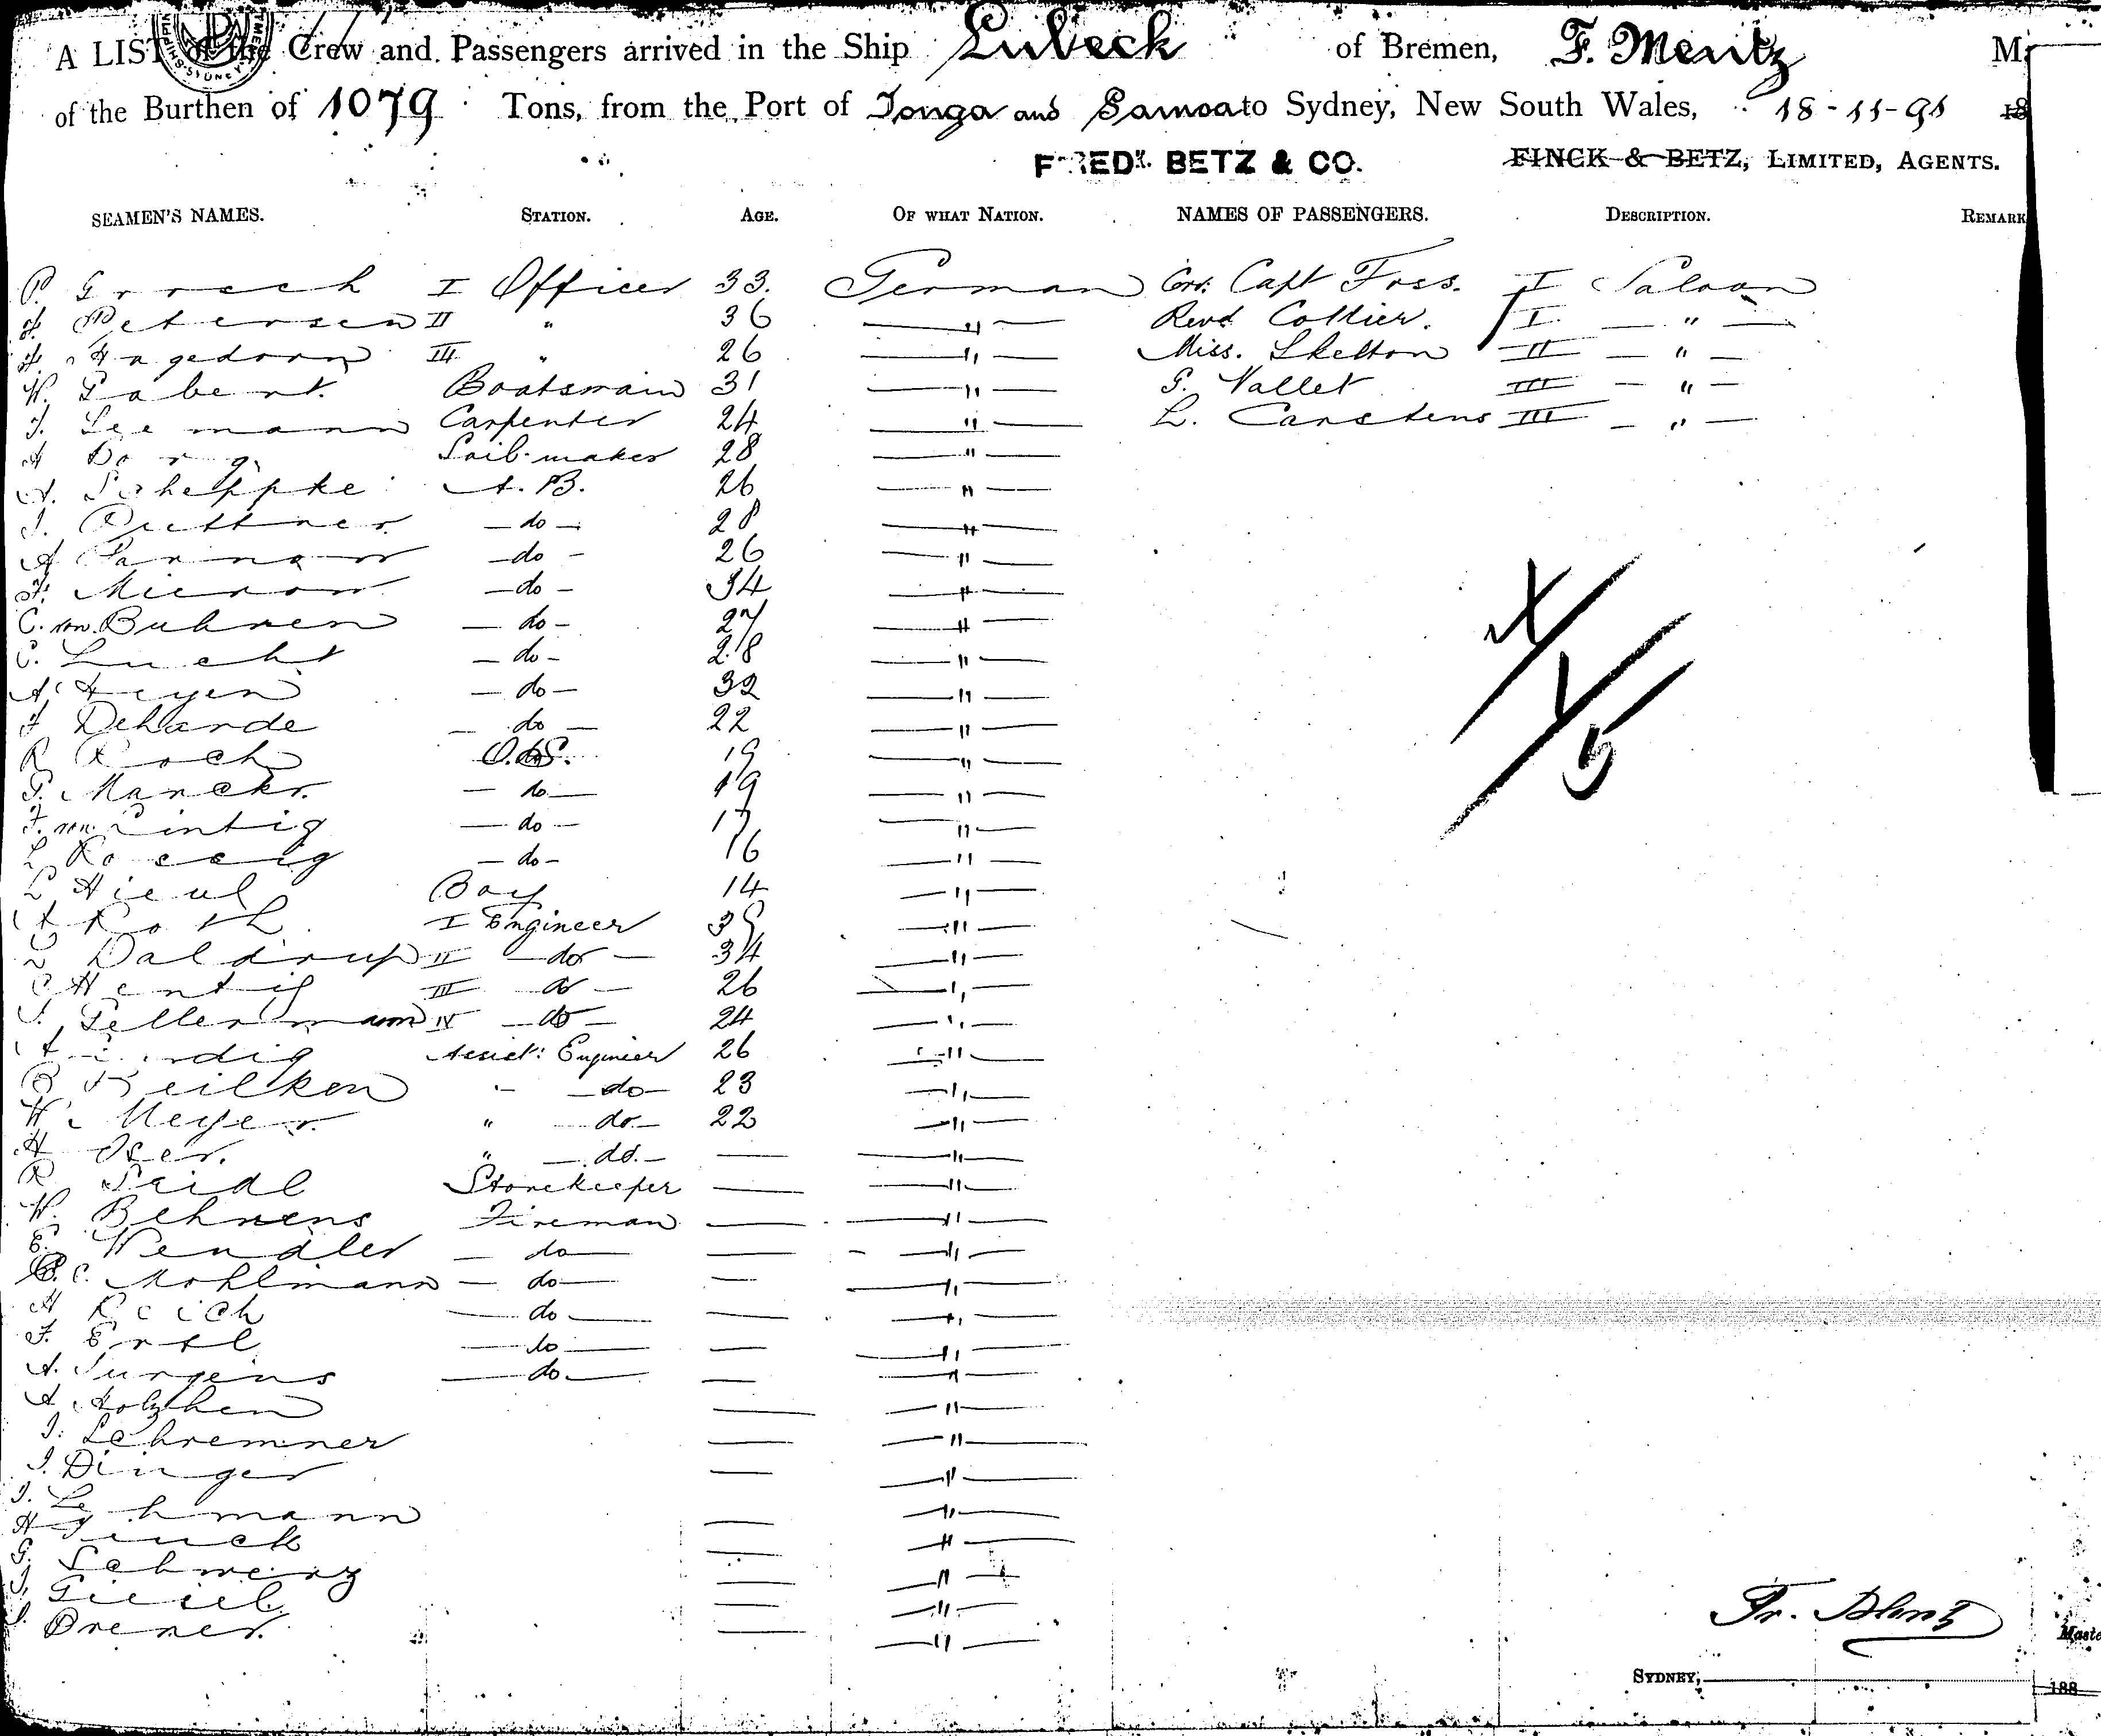 A LIST of the Crew and Passengers arrived in the Ship Lubeck of Bremen, F. Mentz
of the Burthen of 1079 Tons, from the Port of Tonga and Samoa to Sydney, New South Wales, 18-11-91 18
FREDK. BETZ & CO. FINCK & BETZ, LIMITED, AGENTS.
SEAMEN'S NAMES. STATION. AGE. OF WHAT NATION. NAMES OF PASSENGERS. DESCRIPTION. REMARK
P. I Officer 33. German Capt I Saloon
Petersen II " 36 — " — Revd Collier. I — " —
Hagedorn III " 26 — " — Miss. Skelton II — " —
W. Gabert. Boatswain 31 — " — G. Vallet III — " —
Seemann Carpenter 24 — " — L. Carstens III — " —
A Dorg. Sailmaker 28 — " —
A. Scheppke A. B. 26 — " —
Puttner — do — 28 — " —
A — do — 26 — " —
Microw — do — 34 — " —
C. von Buhren — do — 27 — " —
C. Lucht — do — 28 — " —
A. Heyen — do — 32 — " —
Deharde — do — 22 — " —
R Koch O.S. 19 — " —
— do — 19 — " —
F. von Lintig — do — 17 — " —
— do — 16 — " —
Boy 14 — " —
A Roth I Engineer — " —
Daldrup II — do — 34 — " —
C Hentig III do — 26 — " —
Gellermann IV — do — 24 — " —
Assist: Engineer 26 — " —
Beilken " — do — 23 — " —
W. Meyer " do — 22 — " —
H " — do. — — " —
R Seidl Storekeeper — " —
W. Behrens Fireman — " —
E. Wendler — do — — " —
C. Mohlmann — do — — " —
H Reich — do — — " —
F. Ertl — do — — " —
A. Jurgens — do — — " —
A — " —
— " —
J. Dinger — " —
J. Lehmann — " —
H — " —
G. — " —
— " —
— " —
X
V
5
Fr. Mentz
Maste
SYDNEY, 188